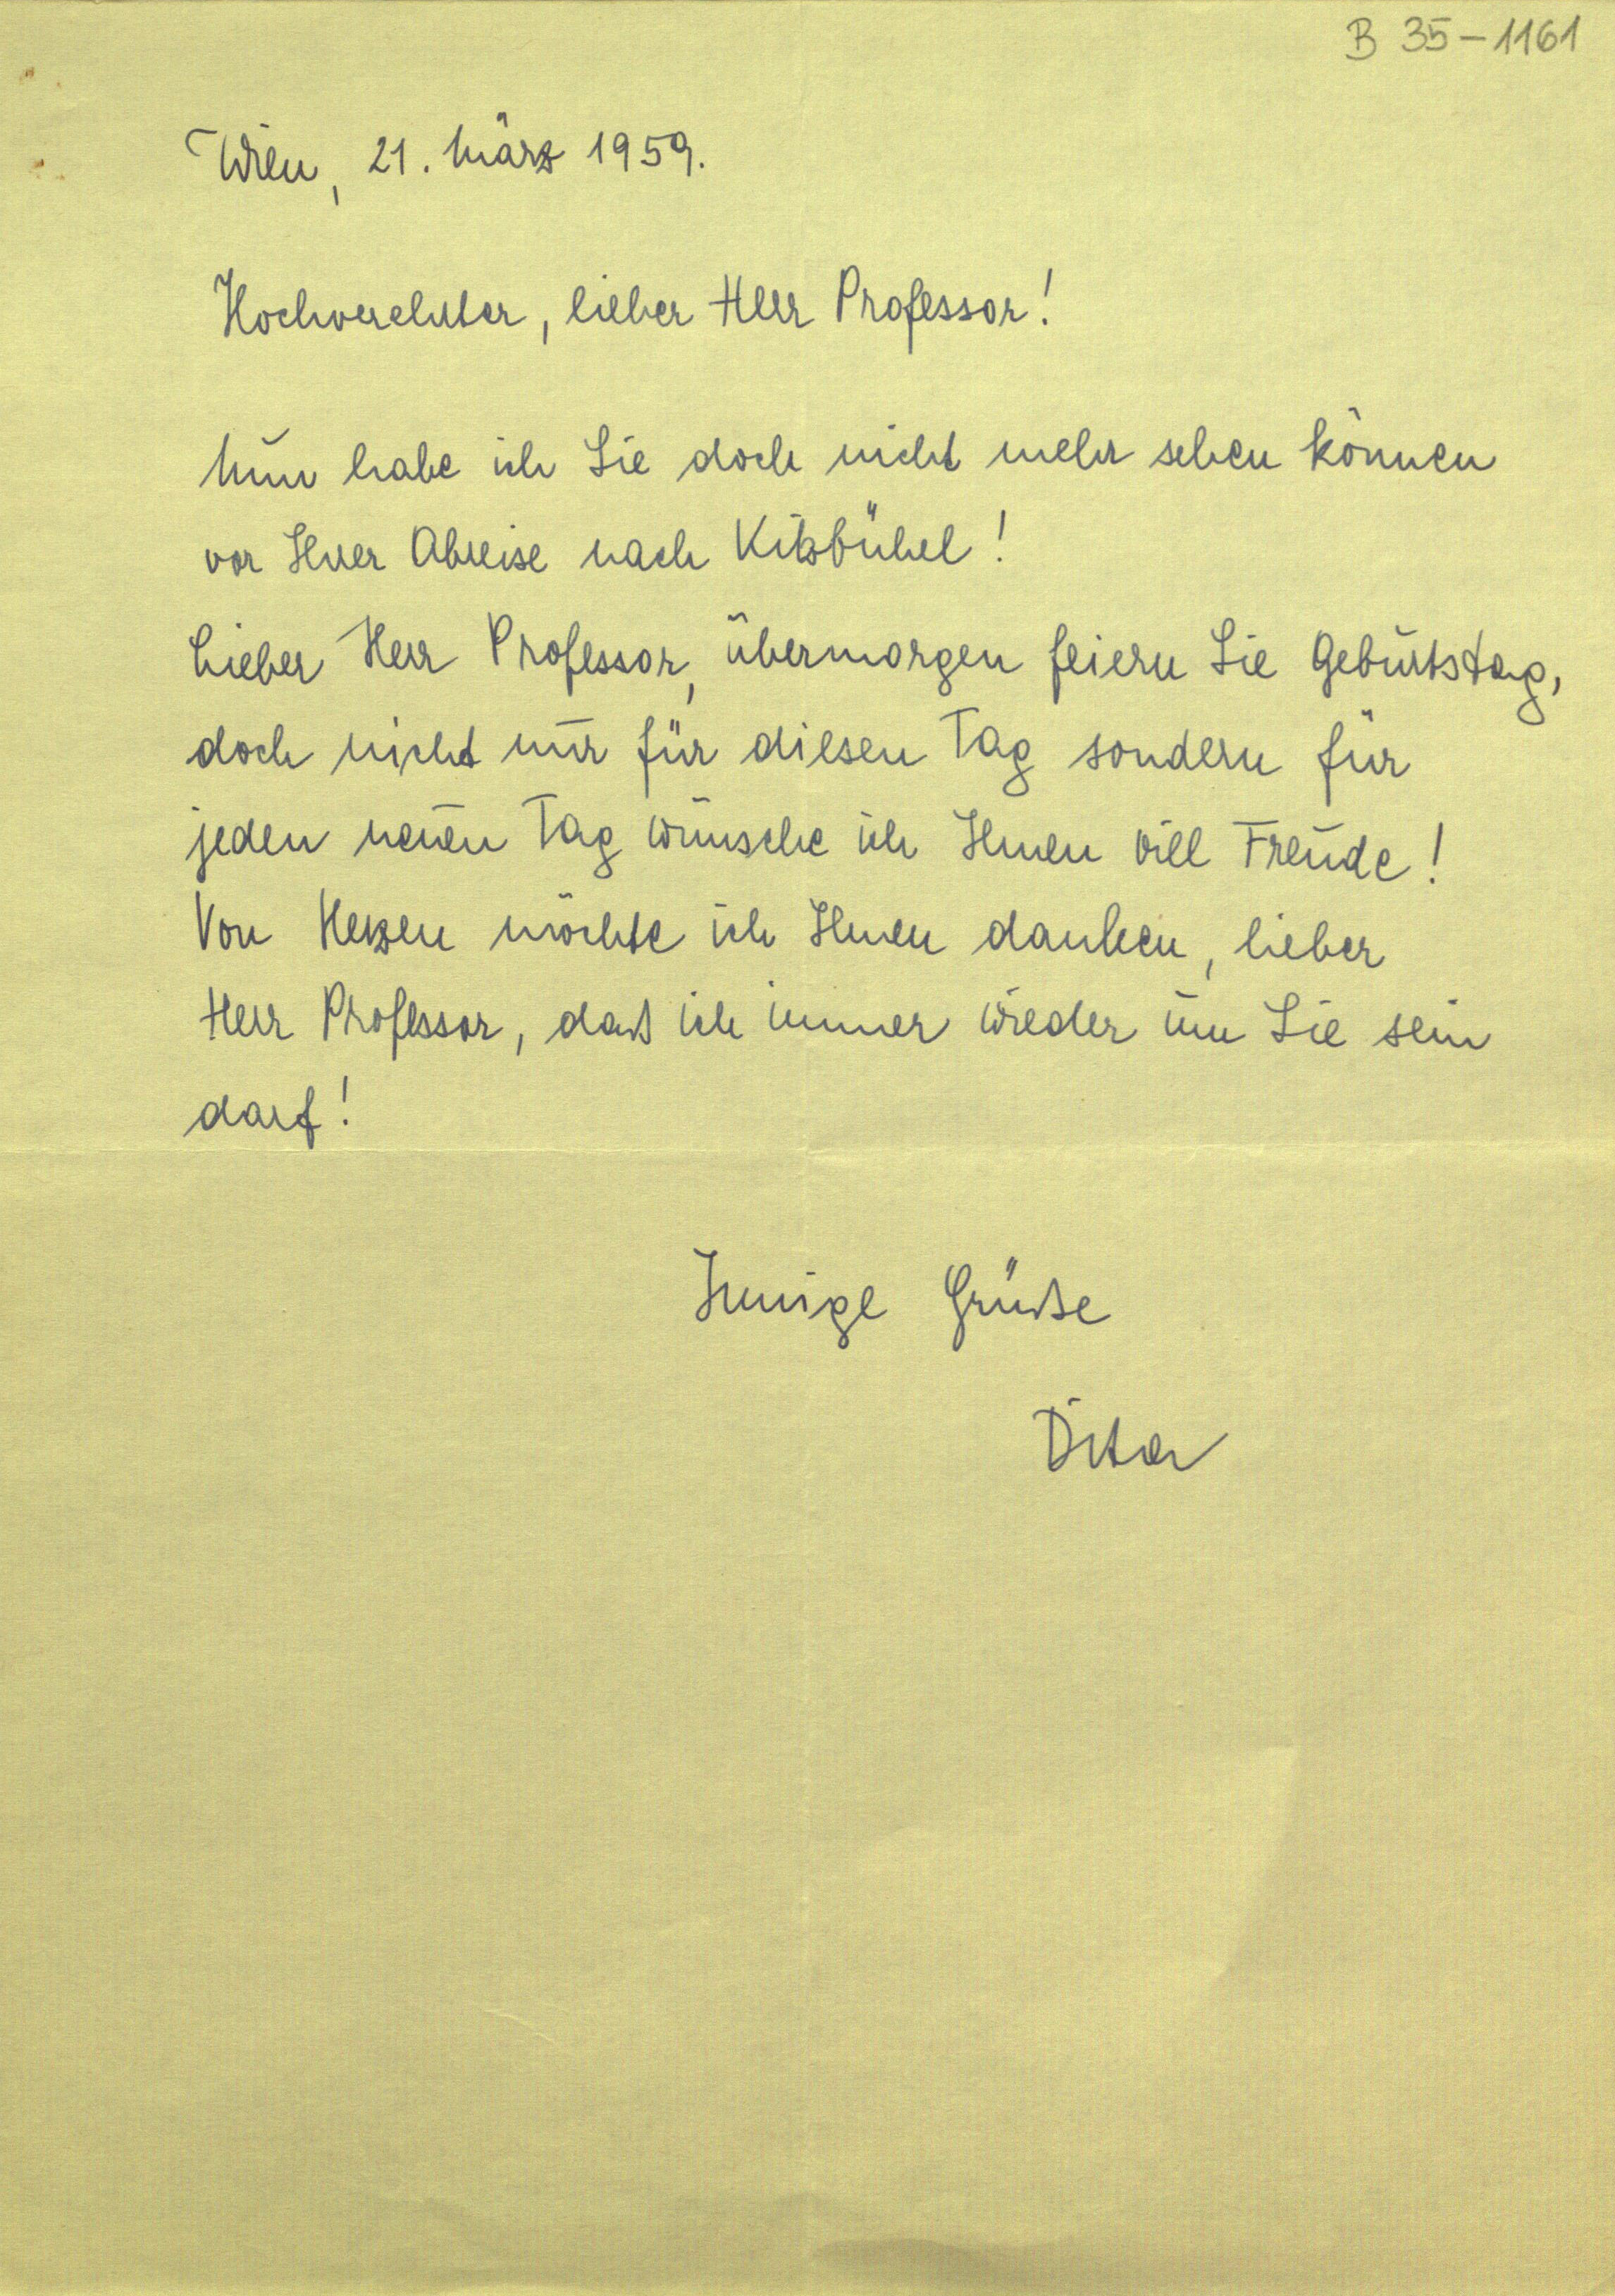 B 35-1161
Wien, 21. März 1959.
Hochverehrter, lieber Herr Professor!
Nun habe ich Sie doch nicht mehr sehen können
vor Ihrer Abreise nach Kitzbühel!
Lieber Herr Professor, übermorgen feiern Sie Geburtstag,
doch nicht nur für diesen Tag sondern für
jeden neuen Tag wünsche ich Ihnen viel Freude!
Von Herzen möchte ich Ihnen danken, lieber
Herr Professor, daß ich immer wieder um Sie sein
darf!
Innige Grüße
Dita